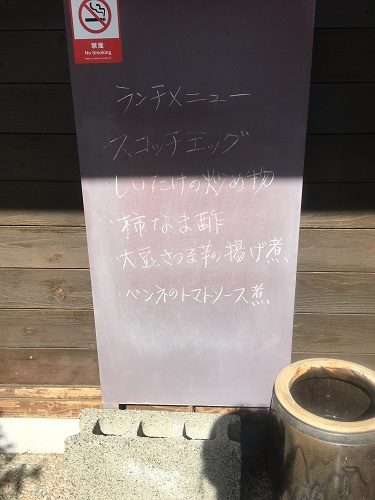 禁煙
No Smoking
ランチメニュー
・スコッチエッグ
・しいたけの炒め物
・柿なま酢
・大豆とさつま芋の揚げ煮
・ペンネのトマトソース煮